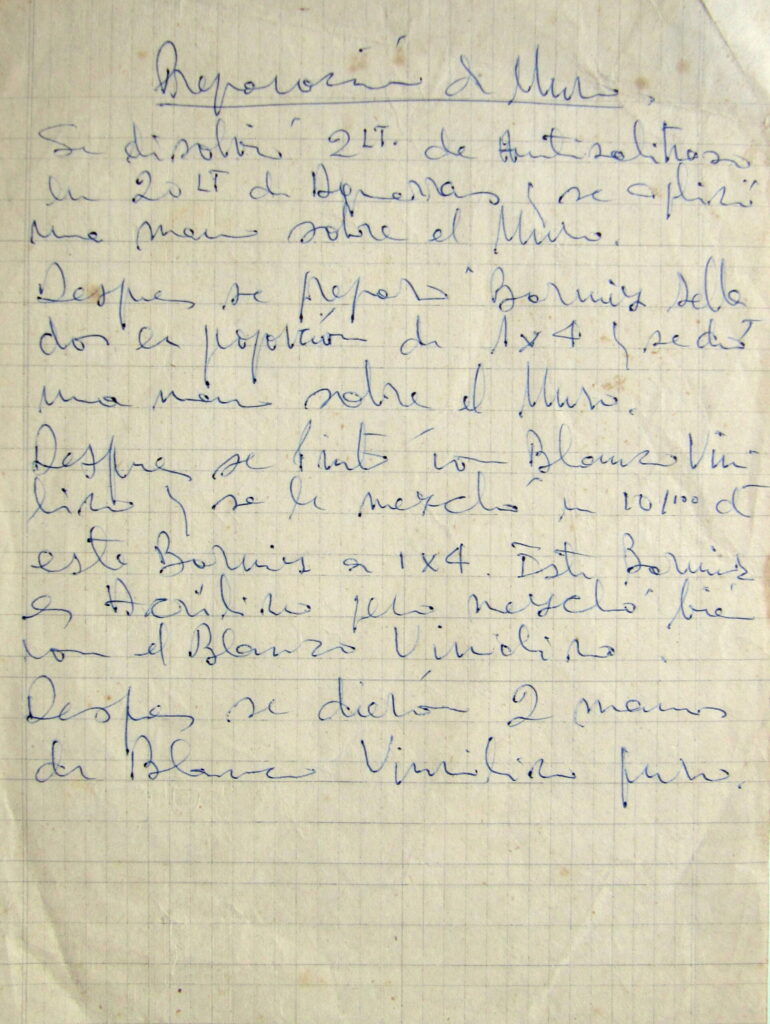 Preparación de Muro.
Se disolvió 2 LT. de Antisalitroso
en 20 LT de Aguarras y se aplicó
una mano sobre el Muro.
Despues se preparó Barniz sella
dor en poporción de 1x4 y se dió
una mano sobre el Muro.
Despues se pintó con Blanco Vini
lico y se le mezcló un 10/100 de
este Barniz a 1x4. Este Barniz
es Acrílico pero mezcló bien
con el Blanco Vinilico.
Despues se dierón 2 manos
de Blanco Vinilico puro.